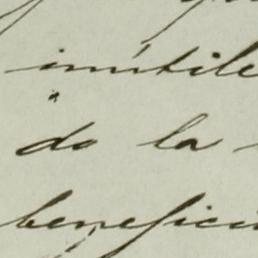 inútile
do la
benefici